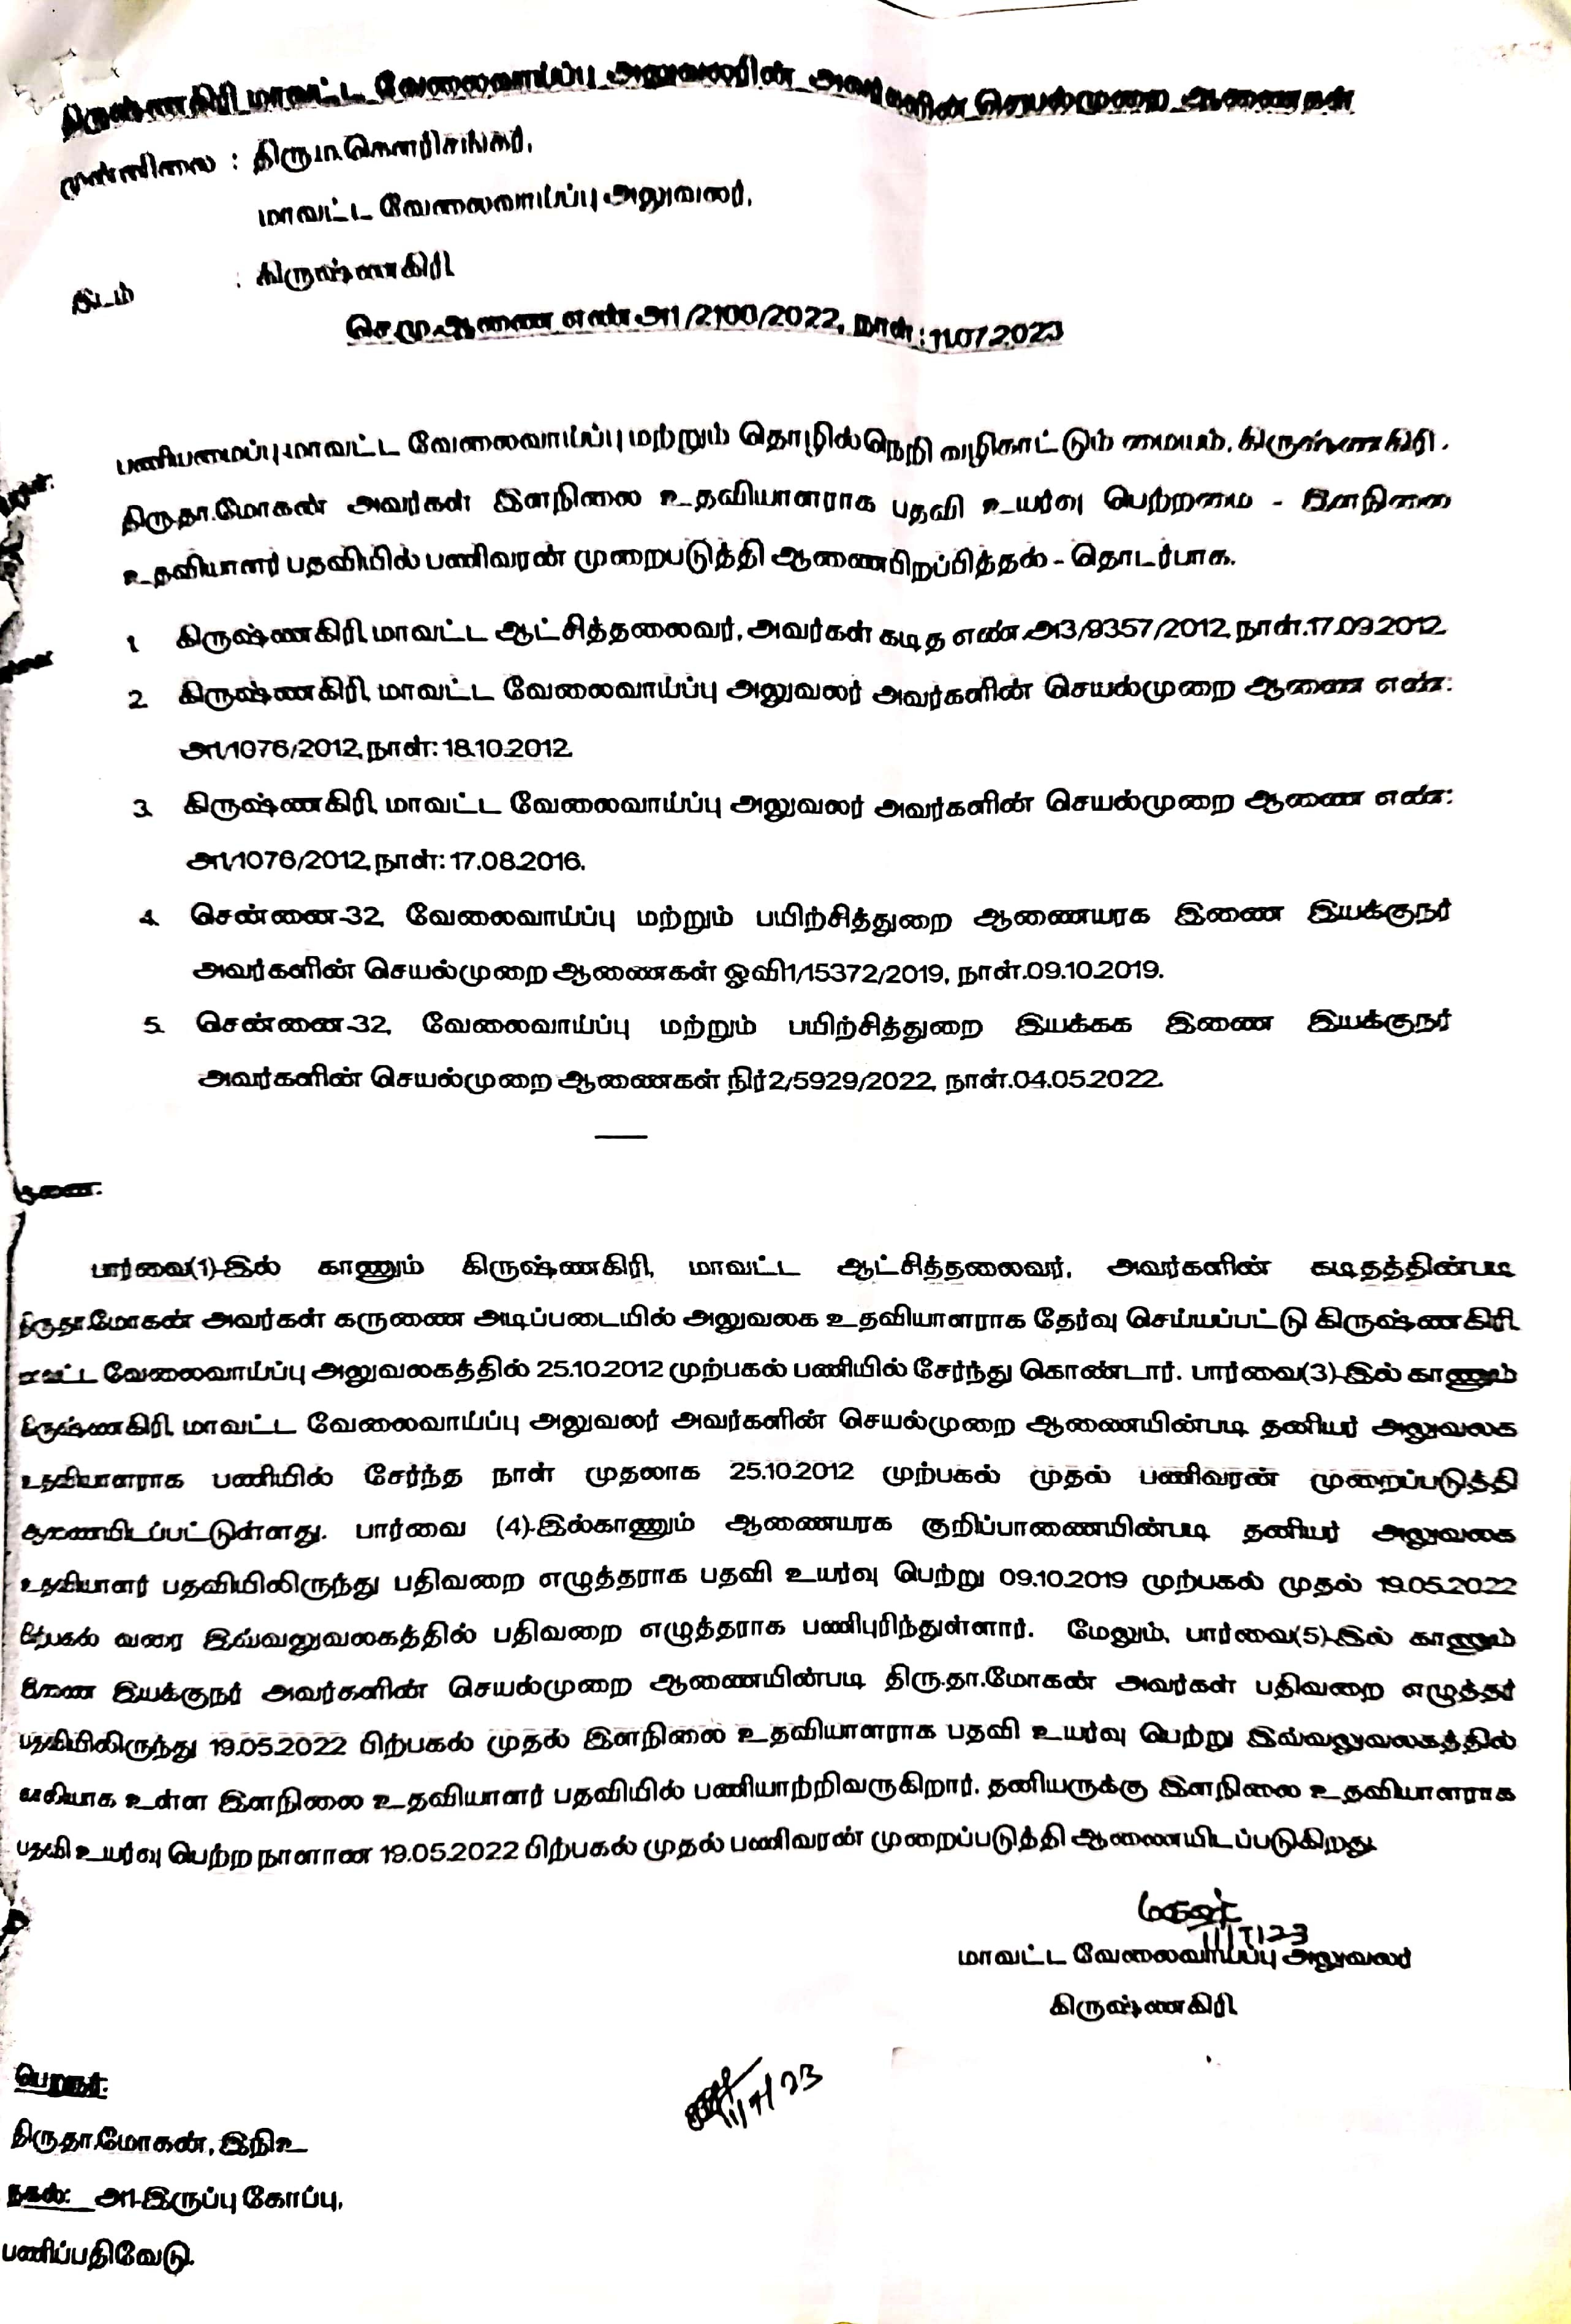 கிருஷ்ணகிரி மாவட்ட வேலைவாய்ப்பு அலுவலரின் அவர்களின் செயல்முறை ஆணைகள்
முன்னிலை : திரு.ம.கௌரிசங்கர்,
மாவட்ட வேலைவாய்ப்பு அலுவலர்,
இடம் : கிருஷ்ணகிரி
செ.மு.ஆணை எண்.அ1/2100/2022, நாள் : 11.07.2023
பணியமைப்பு-மாவட்ட வேலைவாய்ப்பு மற்றும் தொழில்நெறி வழிகாட்டும் மையம், கிருஷ்ணகிரி.
திரு.தா.மோகன் அவர்கள் இளநிலை உதவியாளராக பதவி உயர்வு பெற்றமை - இளநிலை
உதவியாளர் பதவியில் பணிவரன் முறைபடுத்தி ஆணைபிறப்பித்தல் - தொடர்பாக.
1. கிருஷ்ணகிரி, மாவட்ட ஆட்சித்தலைவர், அவர்கள் கடித எண்.அ3/9357/2012, நாள்.17.09.2012.
2. கிருஷ்ணகிரி, மாவட்ட வேலைவாய்ப்பு அலுவலர் அவர்களின் செயல்முறை ஆணை எண்:
அ1/1076/2012, நாள்: 18.10.2012.
3. கிருஷ்ணகிரி, மாவட்ட வேலைவாய்ப்பு அலுவலர் அவர்களின் செயல்முறை ஆணை எண்:
அ1/1076/2012, நாள்: 17.08.2016.
4. சென்னை-32, வேலைவாய்ப்பு மற்றும் பயிற்சித்துறை ஆணையரக இணை இயக்குநர்
அவர்களின் செயல்முறை ஆணைகள் ஓவி1/15372/2019, நாள்.09.10.2019.
5. சென்னை-32, வேலைவாய்ப்பு மற்றும் பயிற்சித்துறை இயக்கக இணை இயக்குநர்
அவர்களின் செயல்முறை ஆணைகள் நிர்2/5929/2022, நாள்.04.05.2022.
ஆணை:
பார்வை(1)-இல் காணும் கிருஷ்ணகிரி, மாவட்ட ஆட்சித்தலைவர், அவர்களின் கடிதத்தின்படி
திரு.தா.மோகன் அவர்கள் கருணை அடிப்படையில் அலுவலக உதவியாளராக தேர்வு செய்யப்பட்டு கிருஷ்ணகிரி,
மாவட்ட வேலைவாய்ப்பு அலுவலகத்தில் 25.10.2012 முற்பகல் பணியில் சேர்ந்து கொண்டார். பார்வை(3)-இல் காணும்
கிருஷ்ணகிரி, மாவட்ட வேலைவாய்ப்பு அலுவலர் அவர்களின் செயல்முறை ஆணையின்படி, தனியர் அலுவலக
உதவியாளராக பணியில் சேர்ந்த நாள் முதலாக 25.10.2012 முற்பகல் முதல் பணிவரன் முறைப்படுத்தி
ஆணையிடப்பட்டுள்ளது. பார்வை (4)-இல்காணும் ஆணையரக குறிப்பாணையின்படி தனியர் அலுவலக
உதவியாளர் பதவியிலிருந்து பதிவறை எழுத்தராக பதவி உயர்வு பெற்று 09.10.2019 முற்பகல் முதல் 19.05.2022
பிற்பகல் வரை இவ்வலுவலகத்தில் பதிவறை எழுத்தராக பணிபுரிந்துள்ளார். மேலும், பார்வை(5)-இல் காணும்
இணை இயக்குநர் அவர்களின் செயல்முறை ஆணையின்படி திரு.தா.மோகன் அவர்கள் பதிவறை எழுத்தர்
பதவியிலிருந்து 19.05.2022 பிற்பகல் முதல் இளநிலை உதவியாளராக பதவி உயர்வு பெற்று இவ்வலுவலகத்தில்
காலியாக உள்ள இளநிலை உதவியாளர் பதவியில் பணியாற்றிவருகிறார். தனியருக்கு இளநிலை உதவியாளராக
பதவி உயர்வு பெற்ற நாளான 19.05.2022 பிற்பகல் முதல் பணிவரன் முறைப்படுத்தி ஆணையிடப்படுகிறது.
11/7/23
மாவட்ட வேலைவாய்ப்பு அலுவலர்
கிருஷ்ணகிரி.
11/7/23
பெறுநர்:
திரு.தா.மோகன், இ.நி.உ
நகல்: அ1-இருப்பு கோப்பு,
பணிப்பதிவேடு.